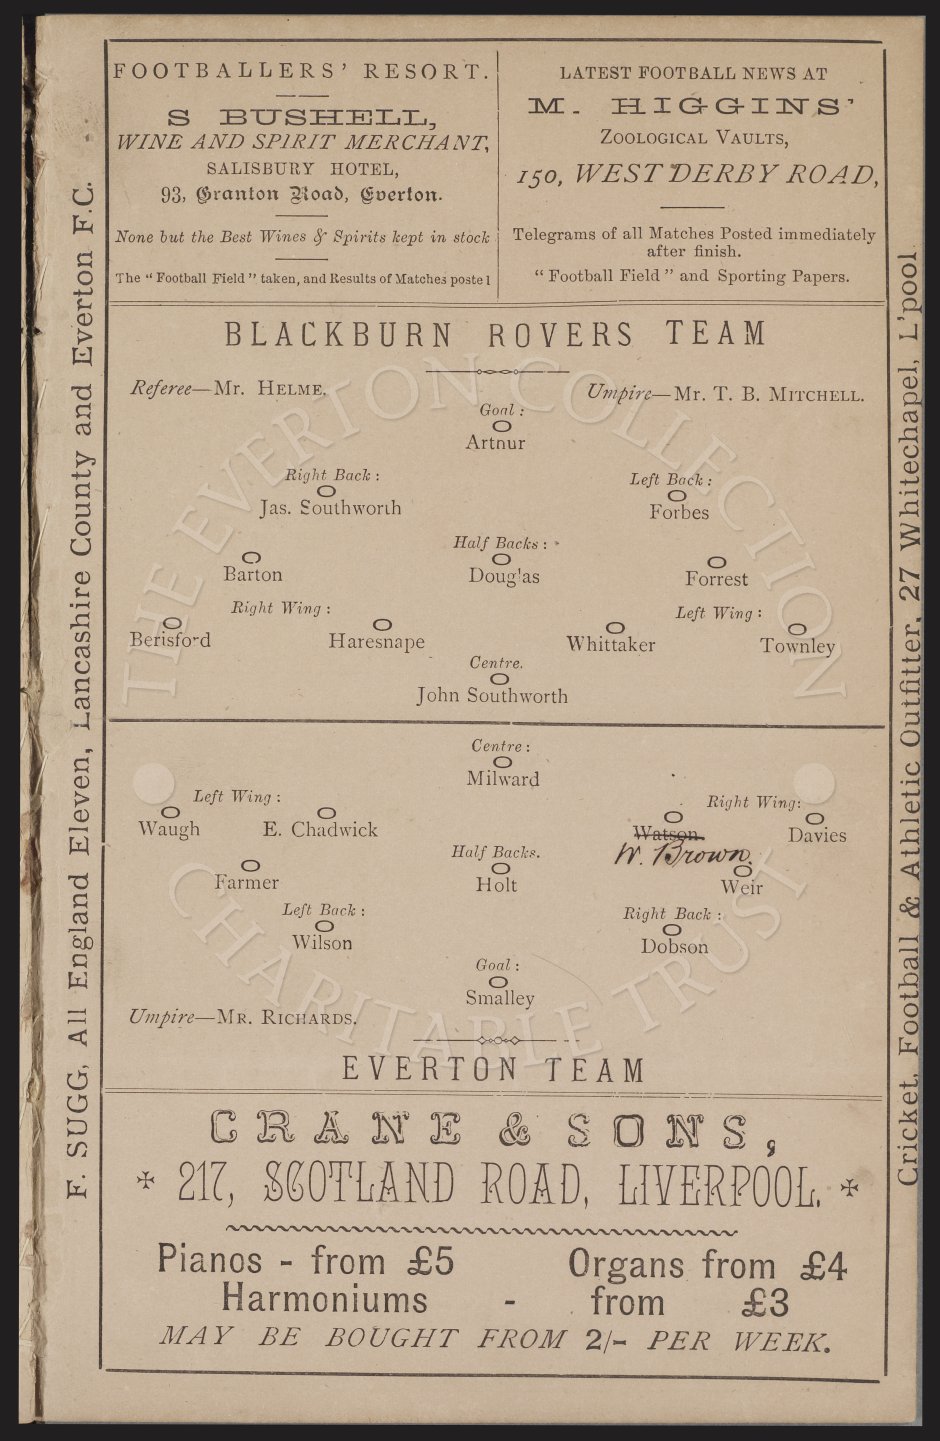 FOOTBALLERS' RESORT.
S BUSHELL,
WINE AND SPIRIT MERCHANT,
SALISBURY HOTEL,
93, Granton Road, Everton.
None but the Best Wines & Spirits kept in stock
The "Football Field" taken, and Results of Matches poste l
LATEST FOOTBALL NEWS AT
M. HIGGINS'
ZOOLOGICAL VAULTS,
150, WEST DERBY ROAD,
Telegrams of all Matches Posted immediately
after finish.
"Football Field" and Sporting Papers.
BLACKBURN ROVERS TEAM
Referee—Mr. HELME.
Umpire—Mr. T. B. MITCHELL.
Goal:
Artnur
Right Back:
Left Back:
Jas. Southworth
Forbes
Half Backs:
Barton
Douglas
Forrest
Right Wing:
Left Wing:
Berisford
Haresnape
Whittaker
Townley
Centre.
John Southworth
Centre:
Milward
Left Wing:
Right Wing:
Waugh
E. Chadwick
Watson
Davies
W. Brown.
Half Backs.
Farmer
Holt
Weir
Left Back:
Right Back:
Wilson
Dobson
Goal:
Smalley
Umpire—MR. RICHARDS.
EVERTON TEAM
CRANE & SONS,
217, SCOTLAND ROAD, LIVERPOOL.
Pianos - from £5 Organs from £4
Harmoniums - from £3
MAY BE BOUGHT FROM 2/- PER WEEK.
F. SUGG, All England Eleven, Lancashire County and Everton F.C.
Cricket, Football & Athletic Outfitter, 27 Whitechapel, L'pool
THE EVERTON COLLECTION
CHARITABLE TRUST